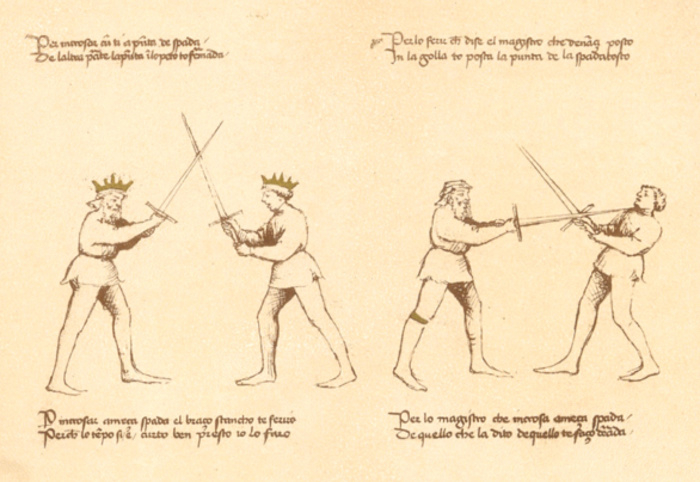 Per incrosar cũ ti a pũta de spada
De laltra pãte la pũta ĩ lo peto to fermada
Per lo ferir ch dise el magistro che denãci posto
In la golla to posta la punta de la spada tosto
P incrosar ameça spada el braço stancho te feriro
Perch lo tẽpo si e curto ben presto io lo farо
Per lo magistro che incrosa ameça spada
De quello che la dito de quello te faço